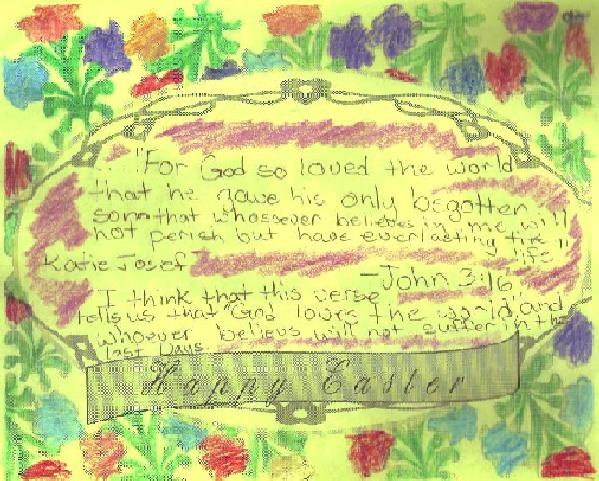 .. "For God so loved the world
that he gave his only begotten
sonn that whossever believes in me will
not perish but have everlasting
life"
Katie Josef
-John 3:16
I think that this verse
tells us that "God loves the world" and
whoever believes will not suffer in the
last Days
Happy Easter